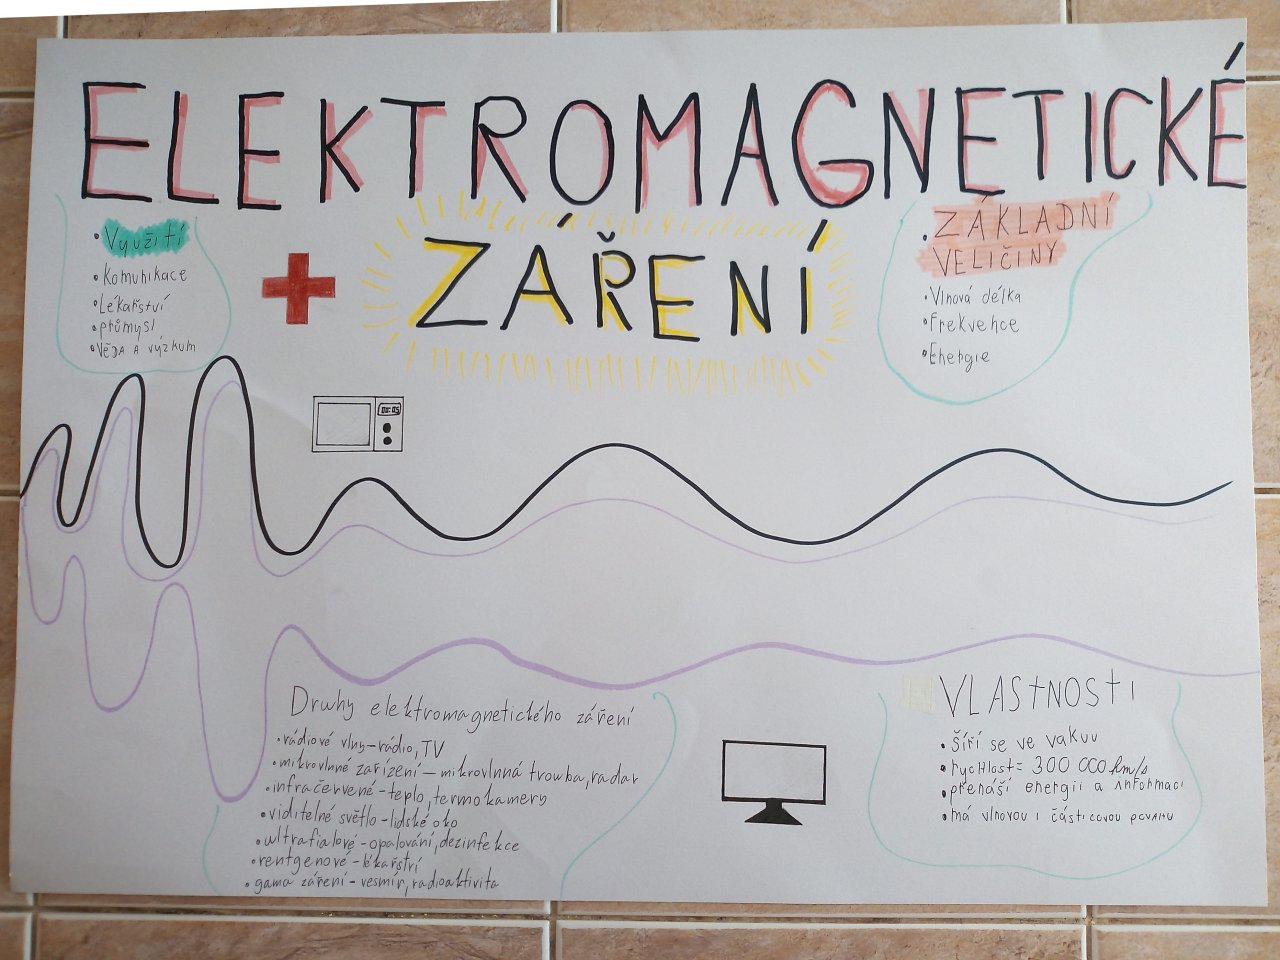 ELEKTROMAGNETICKÉ
ZÁŘENÍ
• Využití
• Komunikace
• Lékařství
• průmysl
• VĚDA A výzkum
• ZÁKLADNÍ
VELIČINY
• Vlnová délka
• frekvence
• Energie
00:05
Druhy elektromagnetického záření
• rádiové vlny – rádio, TV
• mikrovlnné zařízení – mikrovlnná trouba, radar
• infračervené – teplo, termokamery
• viditelné světlo – lidské oko
• ultrafialové – opalování, dezinfekce
• rentgenové – lékařství
• gama záření – vesmír, radioaktivita
VLAStNOSti
• šíří se ve vakuu
• rychlost = 300 000 km/s
• přenáší energii a informaci
• má vlnovou i částicovou povahu